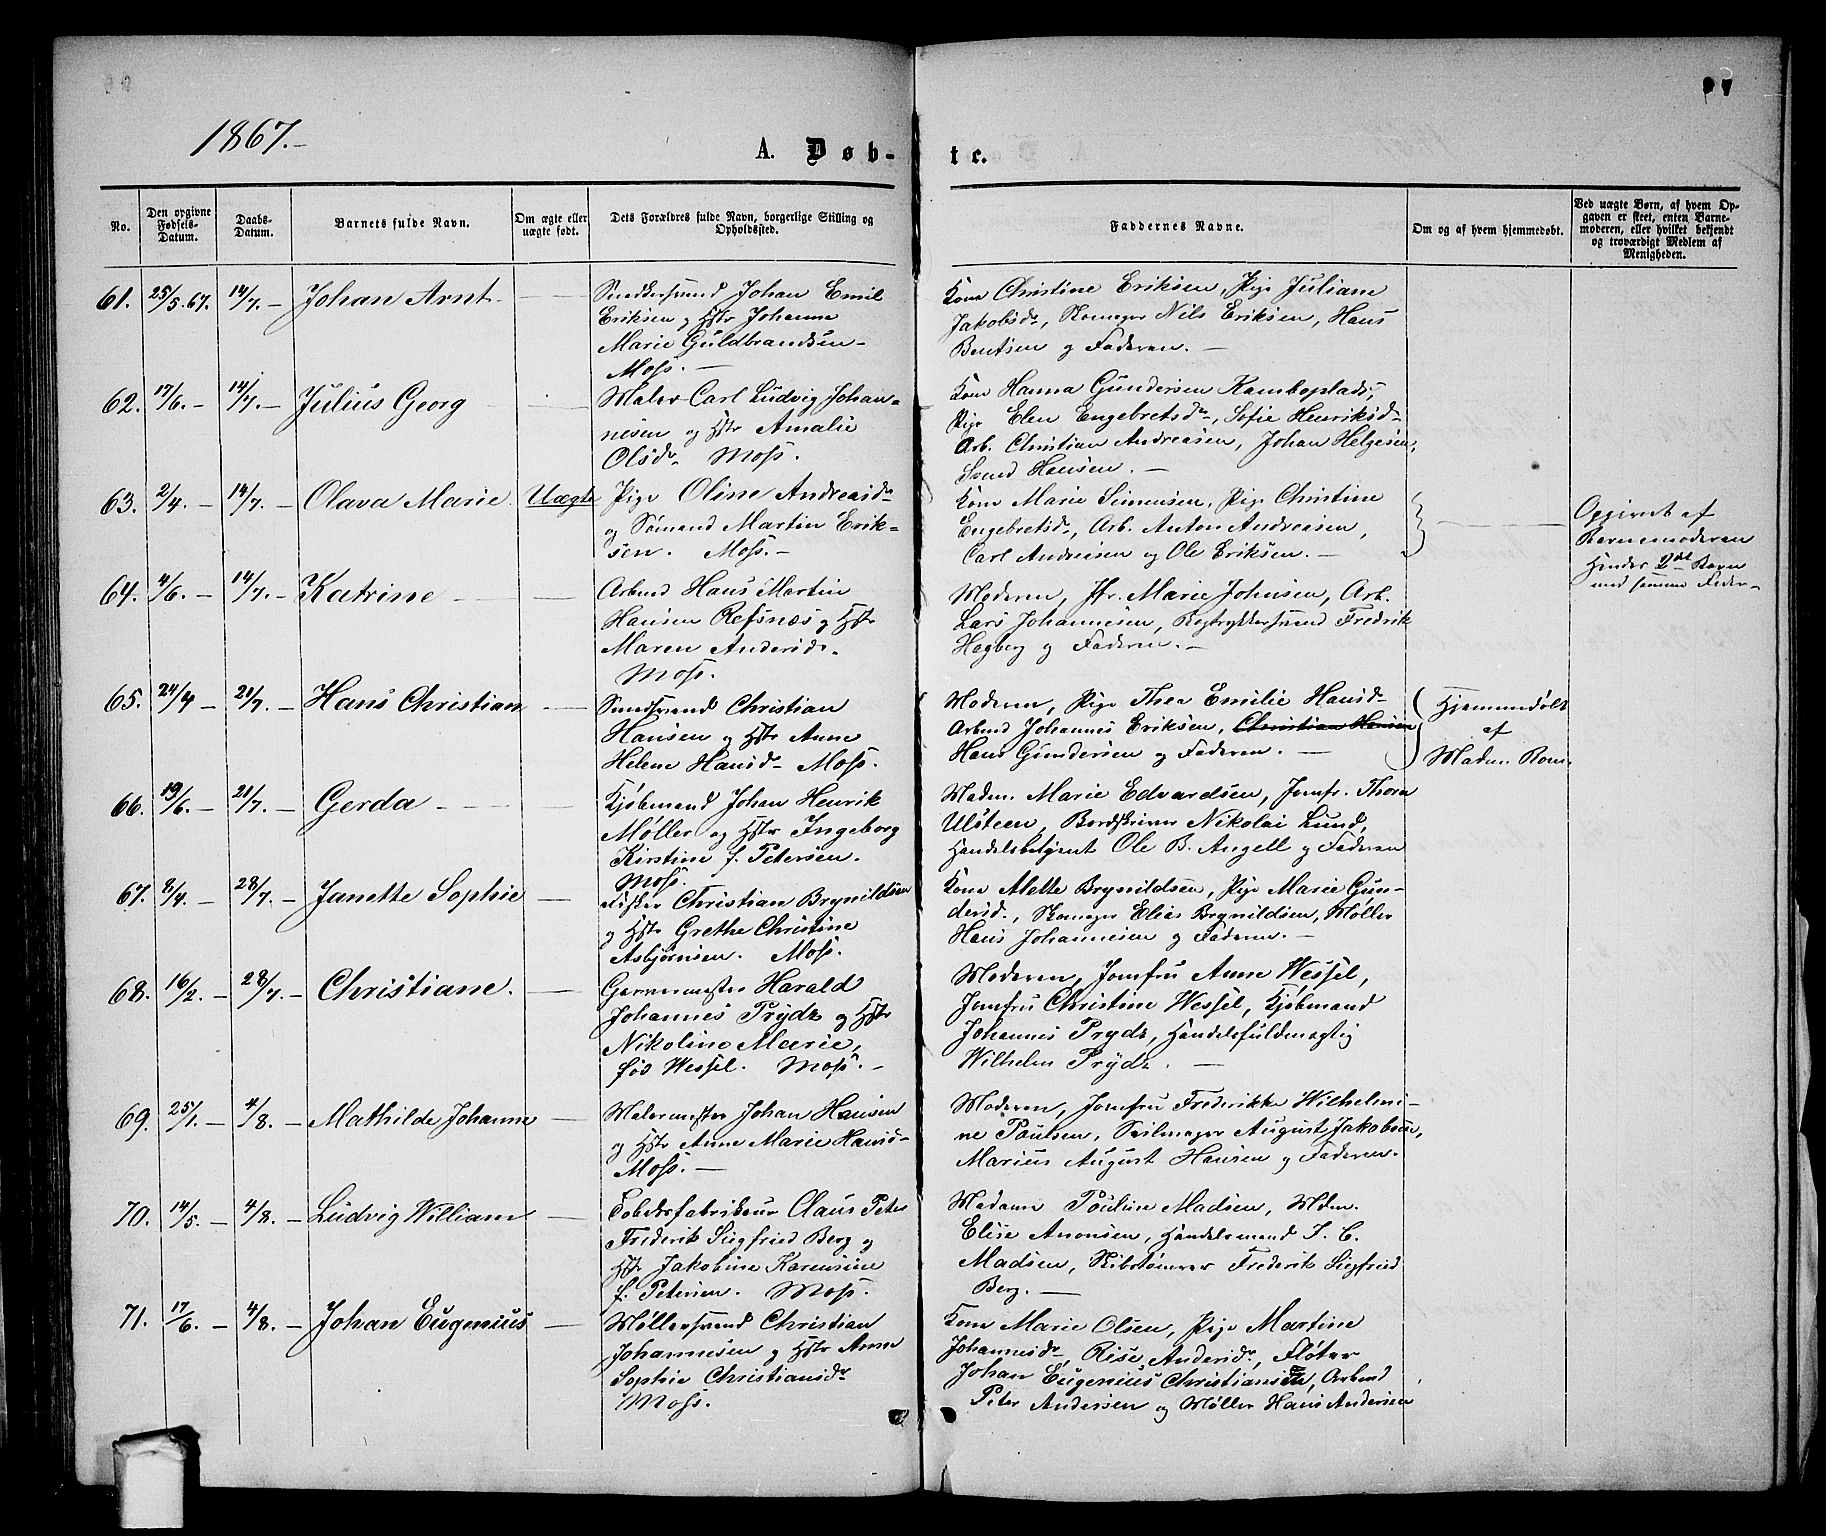 97
1867.-
A. Døb-
te.
No.
Den opgivne Fødsels-Datum.
Daabs-Datum.
Barnets fulde Navn.
Om ægte eller uægte født.
Dets Forældres fulde Navn, borgerlige Stilling og Opholdssted.
Faddernes Navne.
Om og af hvem hjemmedøbt.
Ved uægte Børn, af hvem Opgaven er skeet, enten Barnemoderen, eller hvilket bekjendt og troværdigt Medlem af Menigheden.
61. 25/5.67. 14/7.- Johan Arnt
Snedkersvend Johan Emil
Eriksen og Hstr Johanne
Marie Guldbrandsen-
Moss.-
Kone Christine Eriksen, Pige Juliane
Jakobsdr, Skomager Nils Eriksen, Hans
Bentsen og Faderen.-
62. 17/6.- 14/7.- Julius Georg
Maler Carl Ludvig Johan-
nesen og Hstr Amalie
Olsdr Moss.
Kone Hanna Gundersen Kamboplads,
Pige Elen Engebretsdr, Sofie Henriksd-
Arb. Christian Andreasen, Johan Helgesen,
Svend Hansen.-
63. 2/4.- 14/7.- Olava Marie. Uægte
Pige Oline Andreasdr
og Sømand Martin Erik-
sen. Moss.-
Kone Marie Simensen, Pige Christine
Engebretsdr, Arb. Anton Andreasen,
Carl Andreasen og Ole Eriksen.-
Opgivet af
Barnemoderen
Hendes 2det Barn
med samme Fader-
64. 4/6.- 14/7.- Katrine
Arbmd Hans Martin
Hansen Refsnes og Hstr
Maren Andersdr.
Moss.
Moderen, Jfr. Marie Johnsen, Arb.
Lars Johannesen, Bogtrykkersvend Fredrik
Hagberg og Faderen.-
65. 24/4- 21/7.- Hans Christian
Smedsvend Christian
Hansen og Hstr Anne
Helene Hansd- Moss.
Moderen, Pige Thea Emilie Hansd-
Arbmd Johannes Eriksen, Christian Hansen
Hans Gundersen og Faderen.-
Hjemmedøbt
af
Madm. Rom.
66. 19/6.- 21/7.- Gerda
Kjøbmand Johan Henrik
Møller og Hstr Ingeborg
Kirstine f. Petersen.
Moss.
Madm. Marie Edvardsen, Jomfr. Thora
Ulsteen, Bordskriver Nikolai Lund,
Handelsbetjent Ole B. Angell og Faderen
67. 8/4.- 28/7.- Janette Sophie
Fisker Christian Brynildsen
og Hstr Grethe Christine
Asbjørnsen. Moss.
Kone Alette Brynildsen, Pige Marie Gun-
dersd., Skomager Elias Brynildsen, Møller
Hans Johannesen og Faderen.-
68. 16/2.- 28/7.- Christiane.
Garvermester Harald
Johannes Prydz og Hstr
Nikoline Marie,
fød Wessel. Moss.-
Moderen, Jomfru Anne Wessel,
Jomfru Christine Wessel, Kjøbmand
Johannes Prydz, Handelsfuldmægtig
Wilhelm Prydz.-
69. 25/1.- 4/8.- Mathilde Johanne
Malermester Johan Hansen
og Hstr Anne Marie Hansd-
Moss.-
Moderen, Jomfru Frederikke Wilhelmi-
ne Poulsen, Seilmager August Jakobsen,
Marius August Hansen og Faderen.
70. 14/5.- 4/8.- Ludvig William
Tobaksfabrikeur Claus Peter
Frederik Siegfried Berg og
Hstr Jakobine Karensine
f. Petersen. Moss.
Madame Pouline Madsen, Mdm.
Elise Anonsen, Handelsmand I. C.
Madsen, Skibstømrer Frederik Siegfried
Berg.-
71. 17/6.- 4/8.- Johan Eugenius
Møllersvend Christian
Johannesen og Hstr Anne
Sophie Christiansdr
Moss.
Kone Marie Olsen, Pige Martine
Johannesdr, Rise Andersdr, Fløter
Johan Eugenius Christiansen, Arbmd
Peter Andersen og Møller Hans Andersen